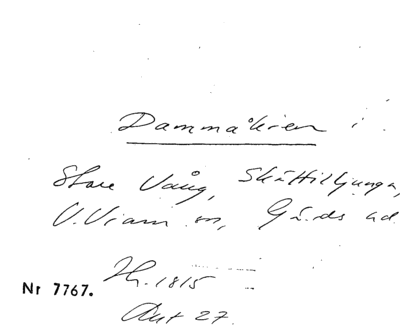 Dammåkien i
Store Vång, Skättilljunga,
V. Vram sn, Gärds hd
Nr 7767.
1815
Aut 27